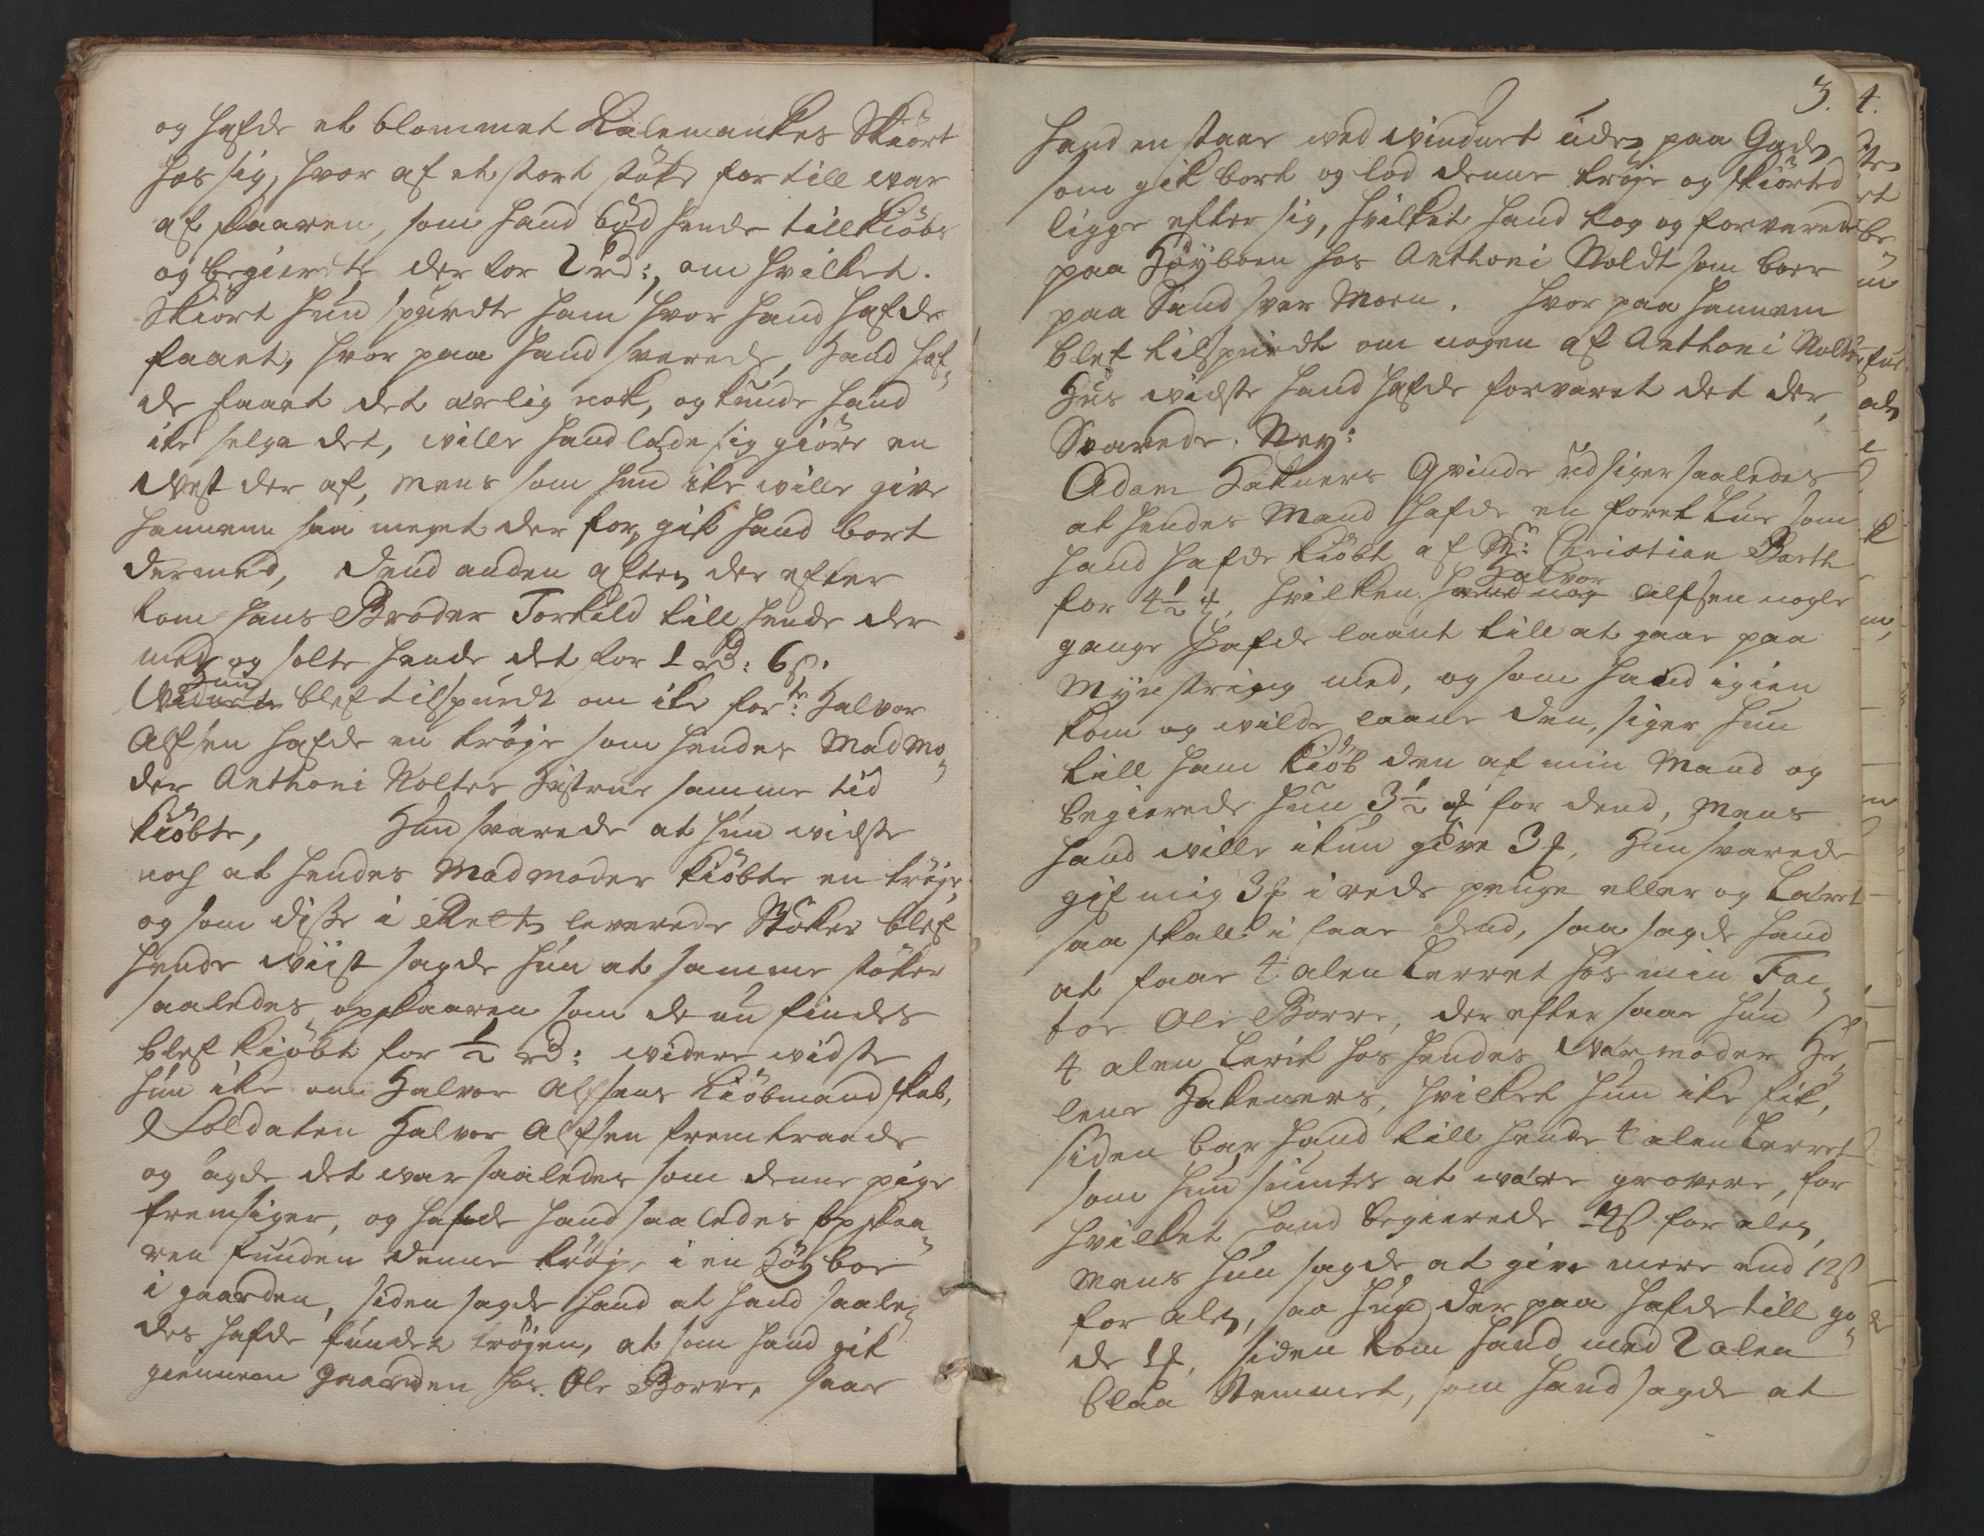 og hafde et blommet Kalemankes Skiört
hos sig, hvor af et stort støke for till war
af skaaren, som hand böd hende till kiöbs
og begierete der for 2 rd:, om hvilket
Skiört hun spurdte ham hvor hand hafde
faaet, hvor paa hand svarede, Hand haf-
de faaet det ærlig nok, og kunde hand
ike selge det, wille hand lade sig giöre en
West der af, mens som hun ike wille give
hannem saa meget der for, gik hand bort
dermed, Dend anden aften der efter
kom hans Broder Torkild till hende der
med og solte hende det for 1 rd: 6 s.
Hun blef tilspurdt om ike forte: Halvor
Alfsen hafde en trøje som hendes Madmo-
der Anthoni Noltes Hustrue samme tid
kiöbte, Hun svarede at hun widste
noch at hendes Madmoder kiöbte en trøje,
og som disse i Retten leverede Støker blef
hende wiist sagde hun at samme støker
saaledes opskaaren som de nu findes
blef kiöbt for 1/2 rd: widere widste
hun ike om Halvor Alfsens Kiöbmandskab,
Soldaten Halvor Alfsen fremtraade
og sagde det war saaledes som denne pige
fremsiger, og hafde hand saaledes opskaa-
ren funden denne trøje i en Höy boe
i gaarden, siden sagde hand at hand saale-
des hafde funden trøjen, at som hand gik
giennem gaarden hos Ole Borre, saae
3.
hand en staae wed winduet uden paa Gaden
som gik bort og lod denne trøje og skiörted
ligge efter sig, hvilket hand tog og forvarede
paa Höyboen hos Anthoni Noldt som boer
paa Sandsvær Moen. Hvor paa hannem
blef tilspurdt om nogen af Anthoni Noltes
Hus widste hand hafde forvaret det der,
Svarede. Ney:
Adam Hakners Qvinde udsiger saaledes
at hendes Mand hafde en foret Lue som
hand hafde kiöbt af Mr: Christian Barth
for 4 1/2 ʒ, hvilken Halvor Alfsen nogle
gange hafde laant till at gaae paa
Mynstring med, og som hand igien
kom og wilde laane den, siger hun
till ham kiöb den af min Mand og
begierede hun 3 1/2 ʒ for dend, Mens
hand wille ikun give 3 ʒ, Hun svarede
gif mig 3 ʒ i rede penge eller og Lærret
saa skall i faae dend, saa sagde hand
at faae 4 alen Lerret hos min Fac-
tor Ole Borre, der efter saae hun
4 alen Lerit hos hendes Wærmoder He-
lene Hakeners, hvilket hun ike fik,
siden bar hand till hende 4 alen Lerret
som hun siuntes at wære grovere, for
hvilket hand begierede s for alen,
Mens hun sagde at give mere end 12 s
for alen, saa hun der paa hafde till go-
de 1 ʒ, siden kom hand med 2 alen
blaa Stemmet, som hand sagde at
4.